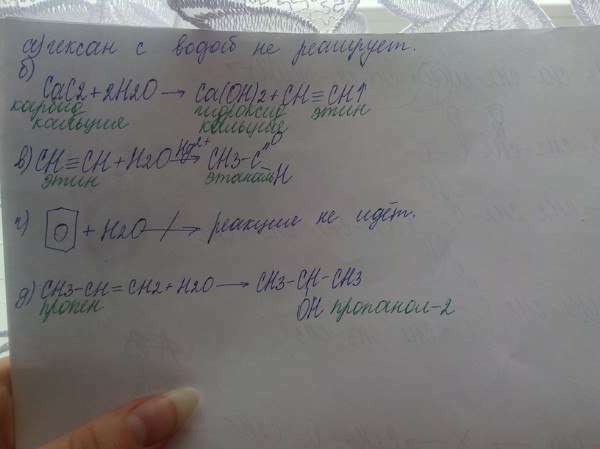 а) гексан с водой не реагирует.
б)
CaC2 + 2H2O → Ca(OH)2 + CH≡CH↑
карбид гидроксид этин
кальция кальция
в) CH≡CH + H2O Hg2+→ CH3-C=O
этин этаналь H
г) + H2O → реакция не идёт.
д) CH3-CH=CH2 + H2O → CH3-CH-CH3
пропен OH пропанол-2